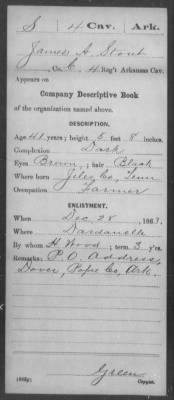 S | 4 Cav. | Ark.
James A. Stout
, Co. C, 4 Reg't Arkansas Cav.
Appears on
Company Descriptive Book
of the organization named above.
DESCRIPTION.
Age 41 years; height 5 feet 8 inches.
Complexion Dark
Eyes Brown; hair Black
Where born Giles Co, Tenn
Occupation Farmer
ENLISTMENT.
When Dec 28, 1863.
Where Dardanelle
By whom H. Wood; term 3 y'rs.
Remarks: P.O. Address,
Dover, Pope Co, Ark.
Green
Copyist.